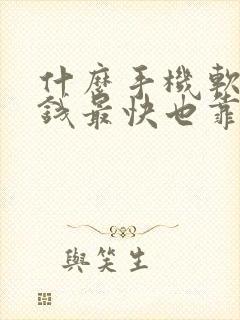 什麼手機軟
錢最快也靠
與笑生